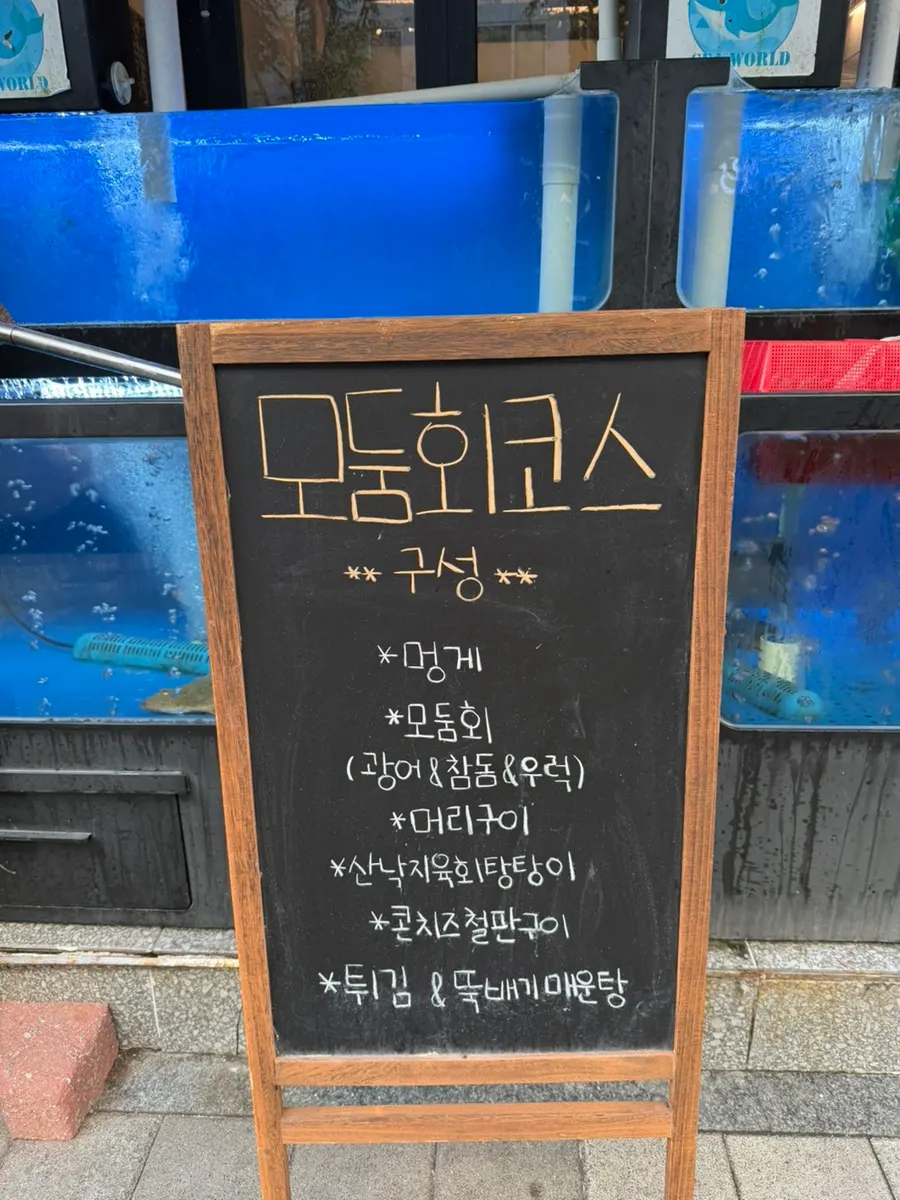 WORLD
WORLD
모둠회코스
** 구성 **
*멍게
*모둠회
(광어&참돔&우럭)
*머리구이
*산낙지육회탕탕이
*콘치즈철판구이
*튀김 & 뚝배기매운탕